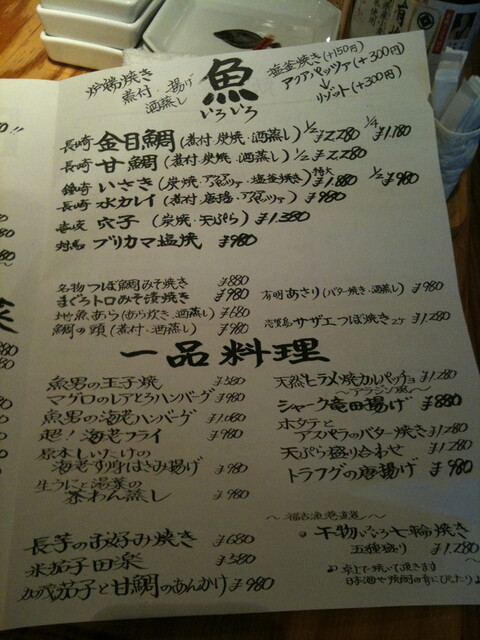 魚
いろいろ
炉端焼き
煮付・揚げ
酒蒸し
塩釜焼き(+150円)
アクアパッツァ(+300円)
↓
リゾット(+300円)
長崎 金目鯛(煮付・炭焼・酒蒸し) 1/2 ¥2,280 1/4 ¥1,180
長崎 甘鯛(煮付・炭焼・酒蒸し) 1/2 ¥2,280
長崎 いさき(炭焼・アクアパッツァ・塩釜焼き) 特大 ¥1,880 1/2 ¥980
長崎 水カレイ(煮付・唐揚・アクアパッツァ) ¥980
壱岐 穴子(炭焼・天ぷら) ¥1,380
対馬 ブリカマ塩焼 ¥980
名物つぼ鯛みそ焼き ¥880
まぐろトロみそ漬焼き ¥980
地魚あら(あら炊き・酒蒸し) ¥680
鯛の頭(煮付・酒蒸し) ¥980
有明 あさり(バター焼き・酒蒸し) ¥980
志賀島 サザエつぼ焼き2ケ ¥1,280
一品料理
魚男の玉子焼 ¥580
マグロのレアとろハンバーグ ¥980
魚男の海老ハンバーグ ¥1,080
超!海老フライ ¥980
原木しいたけの
海老すり身はさみ揚げ ¥980
生うにと湯葉の
茶わん蒸し ¥980
長芋のお好み焼き ¥680
米茄子田楽 ¥580
加茂茄子と甘鯛のあんかけ ¥980
天然ヒラメ焼カルパッチョ ¥1,280
〜アラジン風〜
シャーク竜田揚げ ¥880
ホタテと
アスパラのバター焼き ¥1,280
天ぷら盛り合わせ ¥1,280
トラフグの唐揚げ ¥980
〜福吉漁港直送〜
干物いろいろ七輪焼き
五種盛り ¥1,280
卓上で焼いて頂きます
日本酒や焼酎の肴にぴったり♪